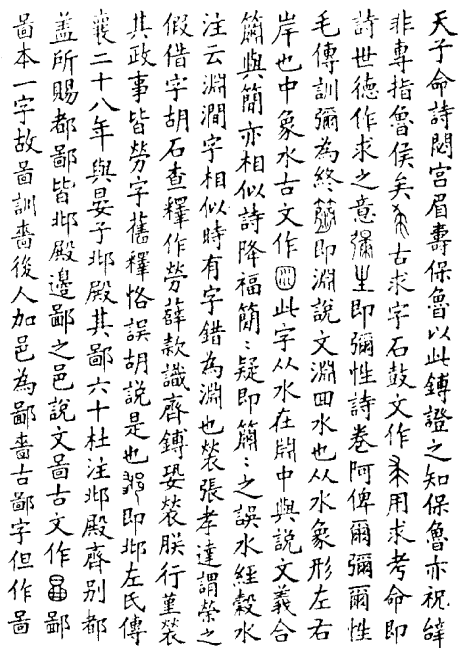 天子命詩閟宮眉壽保魯以此鎛證之知保魯亦祝辭
非專指魯侯矣古求字石鼓文作用求考命即
詩世德作求之意即彌性詩卷阿俾爾彌爾性
毛傳訓彌為終即淵說文淵回水也从水象形左右
岸也中象水古文作此字从水在中與說文義合
與簡亦相似詩降福簡:疑即:之誤水經穀水
注云淵澗字相似時有字錯為淵也褮張孝達謂榮之
假借字胡石查釋作勞薛款識齊鎛褮朕行堇褮
其政事皆勞字舊釋恪誤胡說是也即邶左氏傳
襄二十八年與晏子邶殿其鄙六十杜注邶殿齊別都
蓋所賜都鄙皆邶殿邊鄙之邑說文啚古文作鄙
啚本一字故啚訓嗇後人加邑為鄙嗇古鄙字但作啚